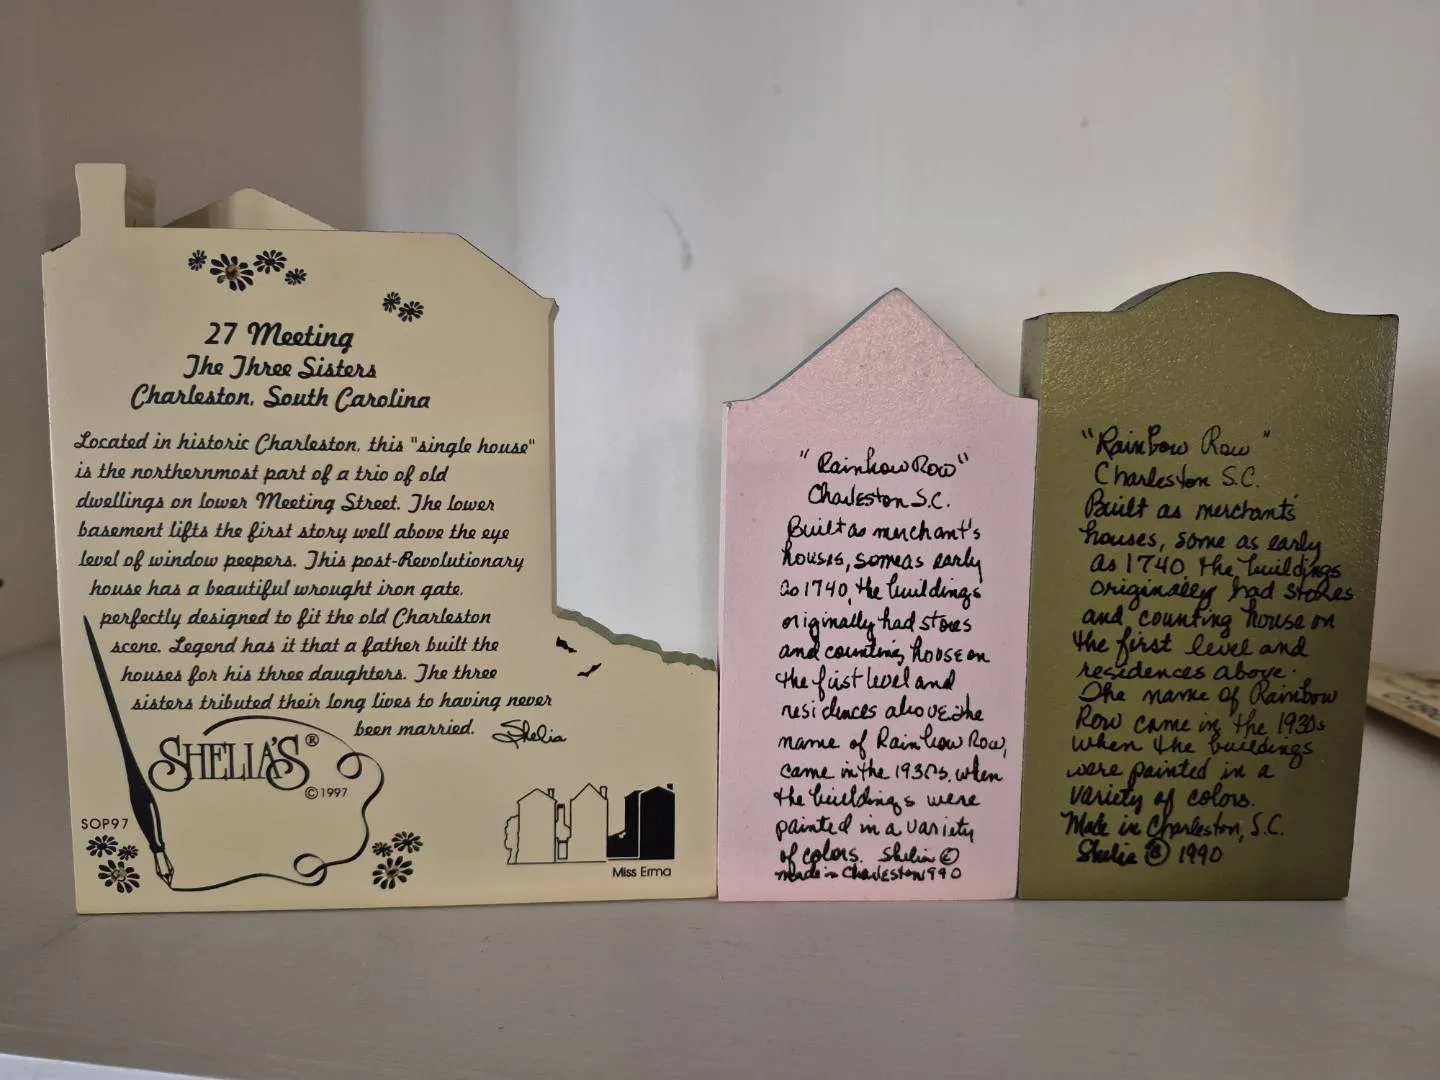 27 Meeting
The Three Sisters
Charleston, South Carolina
Located in historic Charleston, this "single house"
is the northernmost part of a trio of old
dwellings on lower Meeting Street. The lower
basement lifts the first story well above the eye
level of window peepers. This post-Revolutionary
house has a beautiful wrought iron gate,
perfectly designed to fit the old Charleston
scene. Legend has it that a father built the
houses for his three daughters. The three
sisters tributed their long lives to having never
been married. Shelia
SHELIA'S®
©1997
SOP97
Miss Erma
"Rainbow Row"
Charleston S.C.
Built as merchant's
houses, some as early
as 1740, the buildings
originally had stores
and counting house on
the first level and
residences above. The
name of Rainbow Row,
came in the 1930s, when
the buildings were
painted in a variety
of colors. Shelia ©
made in Charleston 1990
"Rainbow Row"
Charleston S.C.
Built as merchants'
houses, some as early
as 1740, the buildings
originally had stores
and counting house on
the first level and
residences above.
The name of Rainbow
Row came in the 1930s
when the buildings
were painted in a
variety of colors.
Made in Charleston, S.C.
Shelia © 1990